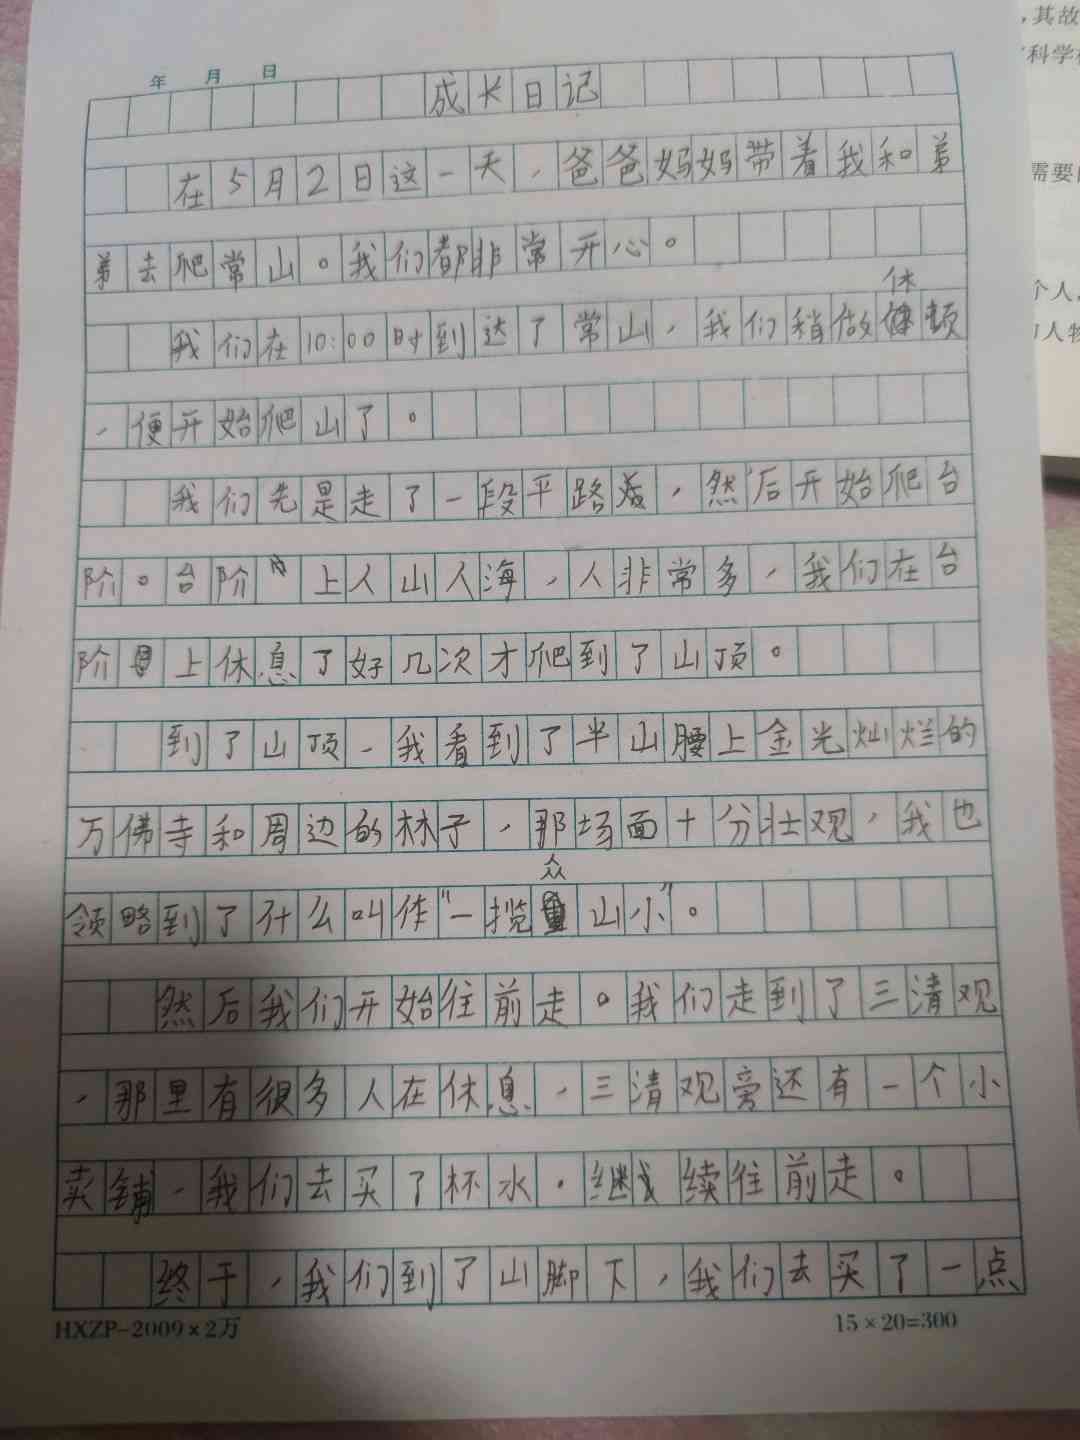 年 月 日
成长日记
在5月2日这一天，爸爸妈妈带着我和弟
弟去爬常山。我们都非常开心。
休
我们在10:00时到达了常山，我们稍做顿
，便开始爬山了。
我们先是走了一段平路，然后开始爬台
阶。台阶上人山人海，人非常多，我们在台
阶上休息了好几次才爬到了山顶。
到了山顶，我看到了半山腰上金光灿烂的
万佛寺和周边的林子，那场面十分壮观，我也
众
领略到了什么叫作“一揽山小”。
然后我们开始往前走。我们走到了三清观
，那里有很多人在休息，三清观旁还有一个小
卖铺，我们去买了杯水，继续往前走。
终于，我们到了山脚下，我们去买了一点
HXZP-2009×2万
15×20=300
，其故
科学
需要
个人，
人物